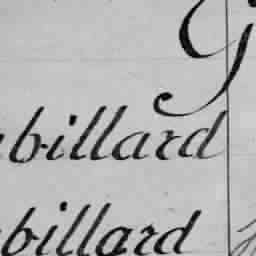 G
billard
billard